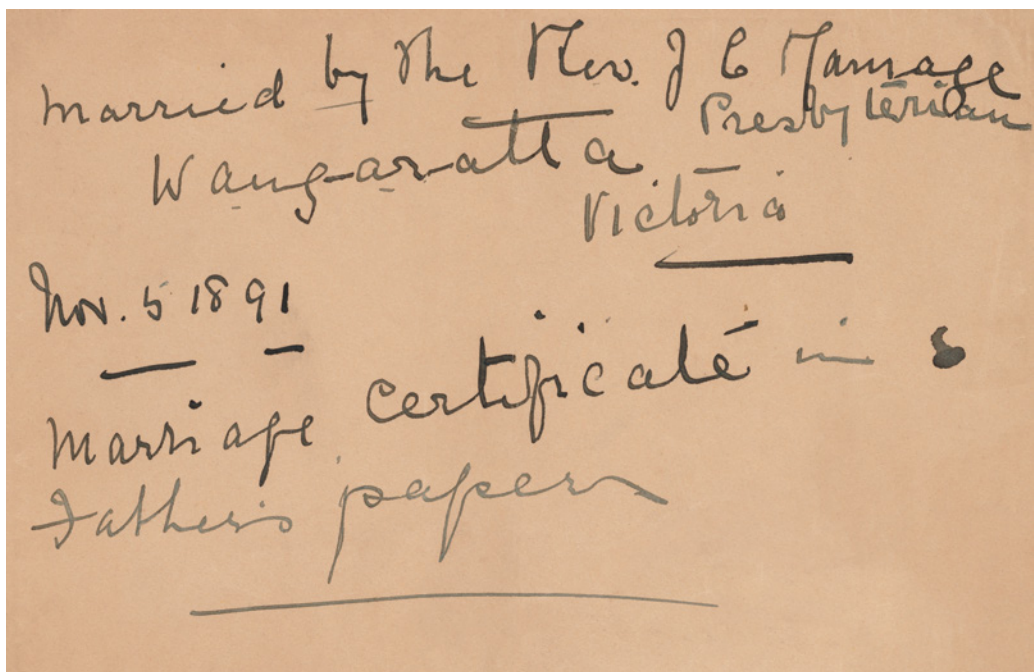 married by the Rev. J C
Presbyterian
Wangaratta
Victoria
Nov. 5 1891
Marriage certificate in
Father's papers